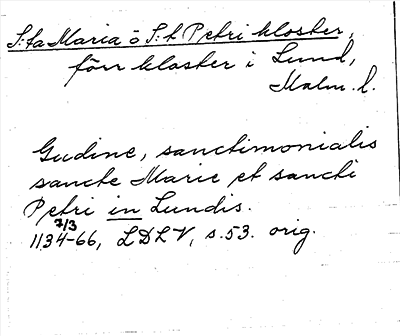 S:ta Maria o S:t Petri kloster,
förr kloster i Lund,
Malm. l.
Gudine, sanctimonialis
sancte Marie et sancti
Petri in Lundis.
7/3
1134-66, LDLV, s.53. orig.